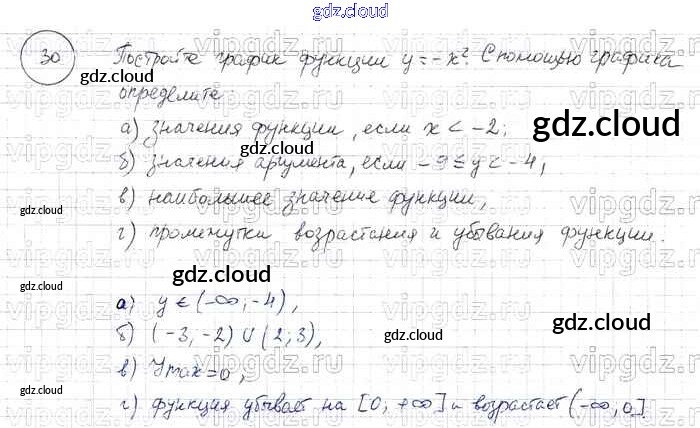 gdz.cloud
30 Постройте график функции y = -x². С помощью графика
определите:
а) значения функции, если x < -2;
б) значения аргумента, если -9 ≤ y < -4,
в) наибольшее значение функции,
г) промежутки возрастания и убывания функции.
а) y ∈ (-∞; -4),
б) (-3, -2) ∪ (2; 3),
в) Ymax = 0,
г) функция убывает на [0, +∞] и возрастает (-∞, 0]
gdz.cloud
gdz.cloud
gdz.cloud
gdz.cloud
gdz.cloud
gdz.cloud
gdz.cloud
gdz.cloud
gdz.cloud
gdz.cloud
vipgdz.ru